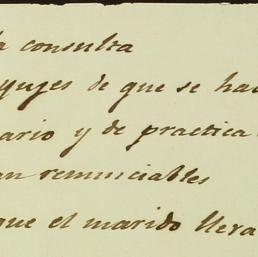 la consulta
yujes de que se ha
ario y de practica
an renunciables
que el marido lleva